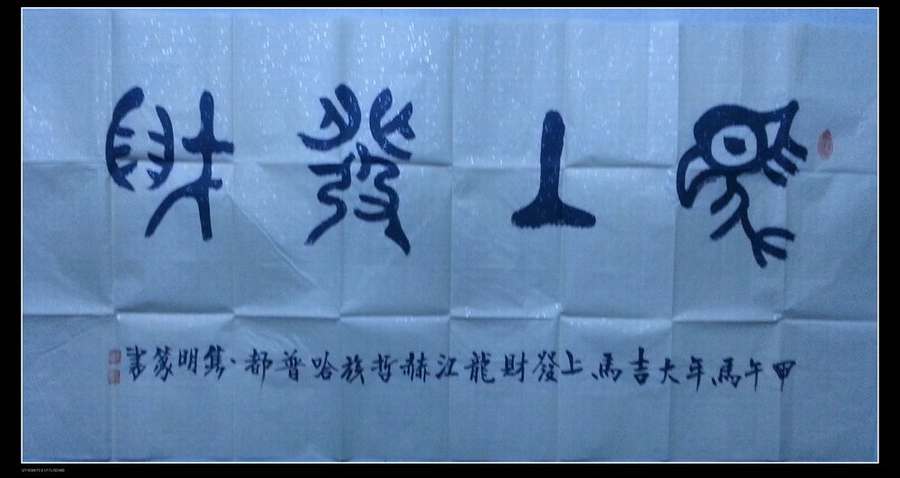 馬上發財
甲午馬年大吉馬上發財龍江赫哲族哈普都·隽明篆書